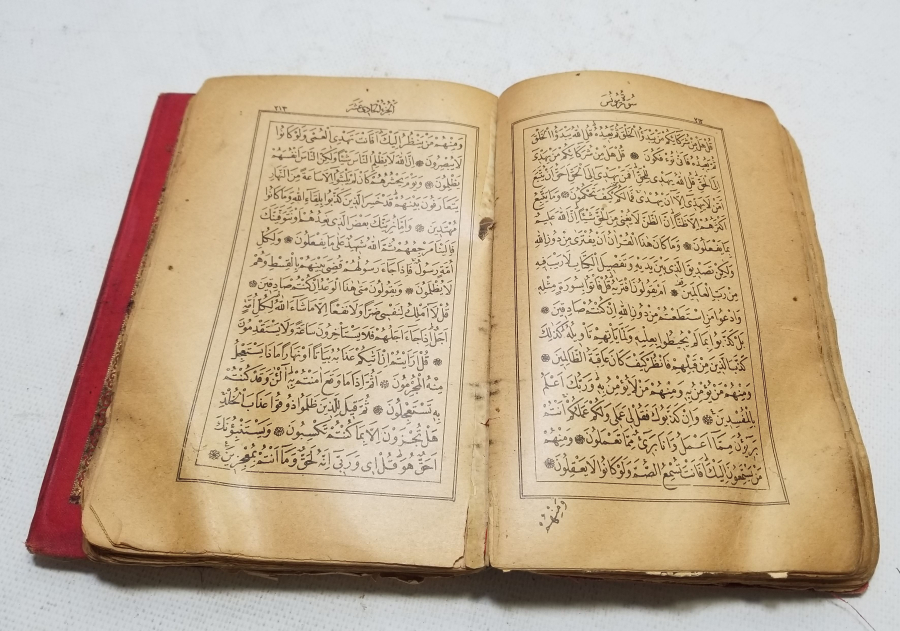 سورة يونس
قُلْ هَلْ مِنْ شُرَكَائِكُمْ مَنْ يَبْدَؤُا الْخَلْقَ ثُمَّ يُعِيدُهُ قُلِ اللهُ يَبْدَؤُا الْخَلْقَ
ثُمَّ يُعِيدُهُ فَاَنّٰى تُؤْفَكُونَ ۞ قُلْ هَلْ مِنْ شُرَكَائِكُمْ مَنْ يَهْدِى
اِلَى الْحَقِّ قُلِ اللهُ يَهْدِى لِلْحَقِّ اَفَمَنْ يَهْدِى اِلَى الْحَقِّ اَحَقُّ اَنْ يُتَّبَعَ
اَمَّنْ لَا يَهِدِّى اِلَّا اَنْ يُهْدٰى فَمَا لَكُمْ كَيْفَ تَحْكُمُونَ ۞ وَمَا يَتَّبِعُ
اَكْثَرُهُمْ اِلَّا ظَنًّا اِنَّ الظَّنَّ لَا يُغْنِى مِنَ الْحَقِّ شَيْئًا اِنَّ اللهَ عَلِيمٌ
بِمَا يَفْعَلُونَ ۞ وَمَا كَانَ هٰذَا الْقُرْاٰنُ اَنْ يُفْتَرٰى مِنْ دُونِ اللهِ
وَلٰكِنْ تَصْدِيقَ الَّذِى بَيْنَ يَدَيْهِ وَتَفْصِيلَ الْكِتَابِ لَا رَيْبَ فِيهِ
مِنْ رَبِّ الْعَالَمِينَ ۞ اَمْ يَقُولُونَ افْتَرٰيهُ قُلْ فَأْتُوا بِسُورَةٍ مِثْلِهِ
وَادْعُوا مَنِ اسْتَطَعْتُمْ مِنْ دُونِ اللهِ اِنْ كُنْتُمْ صَادِقِينَ ۞
بَلْ كَذَّبُوا بِمَا لَمْ يُحِيطُوا بِعِلْمِهِ وَلَمَّا يَأْتِهِمْ تَأْوِيلُهُ كَذٰلِكَ
كَذَّبَ الَّذِينَ مِنْ قَبْلِهِمْ فَانْظُرْ كَيْفَ كَانَ عَاقِبَةُ الظَّالِمِينَ ۞
وَمِنْهُمْ مَنْ يُؤْمِنُ بِهِ وَمِنْهُمْ مَنْ لَا يُؤْمِنُ بِهِ وَرَبُّكَ اَعْلَمُ
بِالْمُفْسِدِينَ ۞ وَاِنْ كَذَّبُوكَ فَقُلْ لِى عَمَلِى وَلَكُمْ عَمَلُكُمْ اَنْتُمْ
بَرِيؤُنَ مِمَّا اَعْمَلُ وَاَنَا بَرِئٌ مِمَّا تَعْمَلُونَ ۞ وَمِنْهُمْ
مَنْ يَسْتَمِعُونَ اِلَيْكَ اَفَاَنْتَ تُسْمِعُ الصُّمَّ وَلَوْ كَانُوا لَا يَعْقِلُونَ ۞
وَمِنْهُمْ
الجزء الحادى عشر
٢١٣
وَمِنْهُمْ مَنْ يَنْظُرُ اِلَيْكَ اَفَاَنْتَ تَهْدِى الْعُمْىَ وَلَوْ كَانُوا
لَا يُبْصِرُونَ ۞ اِنَّ اللهَ لَا يَظْلِمُ النَّاسَ شَيْئًا وَلٰكِنَّ النَّاسَ اَنْفُسَهُمْ
يَظْلِمُونَ ۞ وَيَوْمَ يَحْشُرُهُمْ كَاَنْ لَمْ يَلْبَثُوا اِلَّا سَاعَةً مِنَ النَّهَارِ
يَتَعَارَفُونَ بَيْنَهُمْ قَدْ خَسِرَ الَّذِينَ كَذَّبُوا بِلِقَاءِ اللهِ وَمَا كَانُوا
مُهْتَدِينَ ۞ وَاِمَّا نُرِيَنَّكَ بَعْضَ الَّذِى نَعِدُهُمْ اَوْ نَتَوَفَّيَنَّكَ
فَاِلَيْنَا مَرْجِعُهُمْ ثُمَّ اللهُ شَهِيدٌ عَلٰى مَا يَفْعَلُونَ ۞ وَلِكُلِّ
اُمَّةٍ رَسُولٌ فَاِذَا جَاءَ رَسُولُهُمْ قُضِىَ بَيْنَهُمْ بِالْقِسْطِ وَهُمْ
لَا يُظْلَمُونَ ۞ وَيَقُولُونَ مَتٰى هٰذَا الْوَعْدُ اِنْ كُنْتُمْ صَادِقِينَ ۞
قُلْ لَا اَمْلِكُ لِنَفْسِى ضَرًّا وَلَا نَفْعًا اِلَّا مَا شَاءَ اللهُ لِكُلِّ اُمَّةٍ
اَجَلٌ اِذَا جَاءَ اَجَلُهُمْ فَلَا يَسْتَأْخِرُونَ سَاعَةً وَلَا يَسْتَقْدِمُونَ
۞ قُلْ اَرَاَيْتُمْ اِنْ اَتٰيكُمْ عَذَابُهُ بَيَاتًا اَوْ نَهَارًا مَاذَا يَسْتَعْجِلُ
مِنْهُ الْمُجْرِمُونَ ۞ اَثُمَّ اِذَا مَا وَقَعَ اٰمَنْتُمْ بِهِ اٰلْئٰنَ وَقَدْ كُنْتُمْ
بِهِ تَسْتَعْجِلُونَ ۞ ثُمَّ قِيلَ لِلَّذِينَ ظَلَمُوا ذُوقُوا عَذَابَ الْخُلْدِ
هَلْ تُجْزَوْنَ اِلَّا بِمَا كُنْتُمْ تَكْسِبُونَ ۞ وَيَسْتَنْبِؤُنَكَ
اَحَقٌّ هُوَ قُلْ اِى وَرَبِّى اِنَّهُ لَحَقٌّ وَمَا اَنْتُمْ بِمُعْجِزِينَ ۞